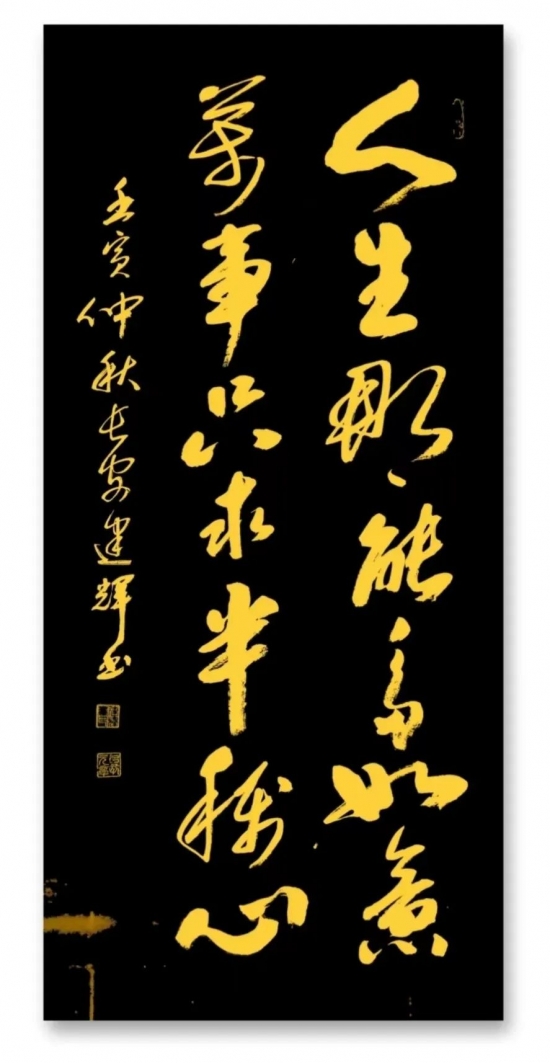 人生那能多如意
萬事只求半稱心
壬寅仲秋长安建輝书